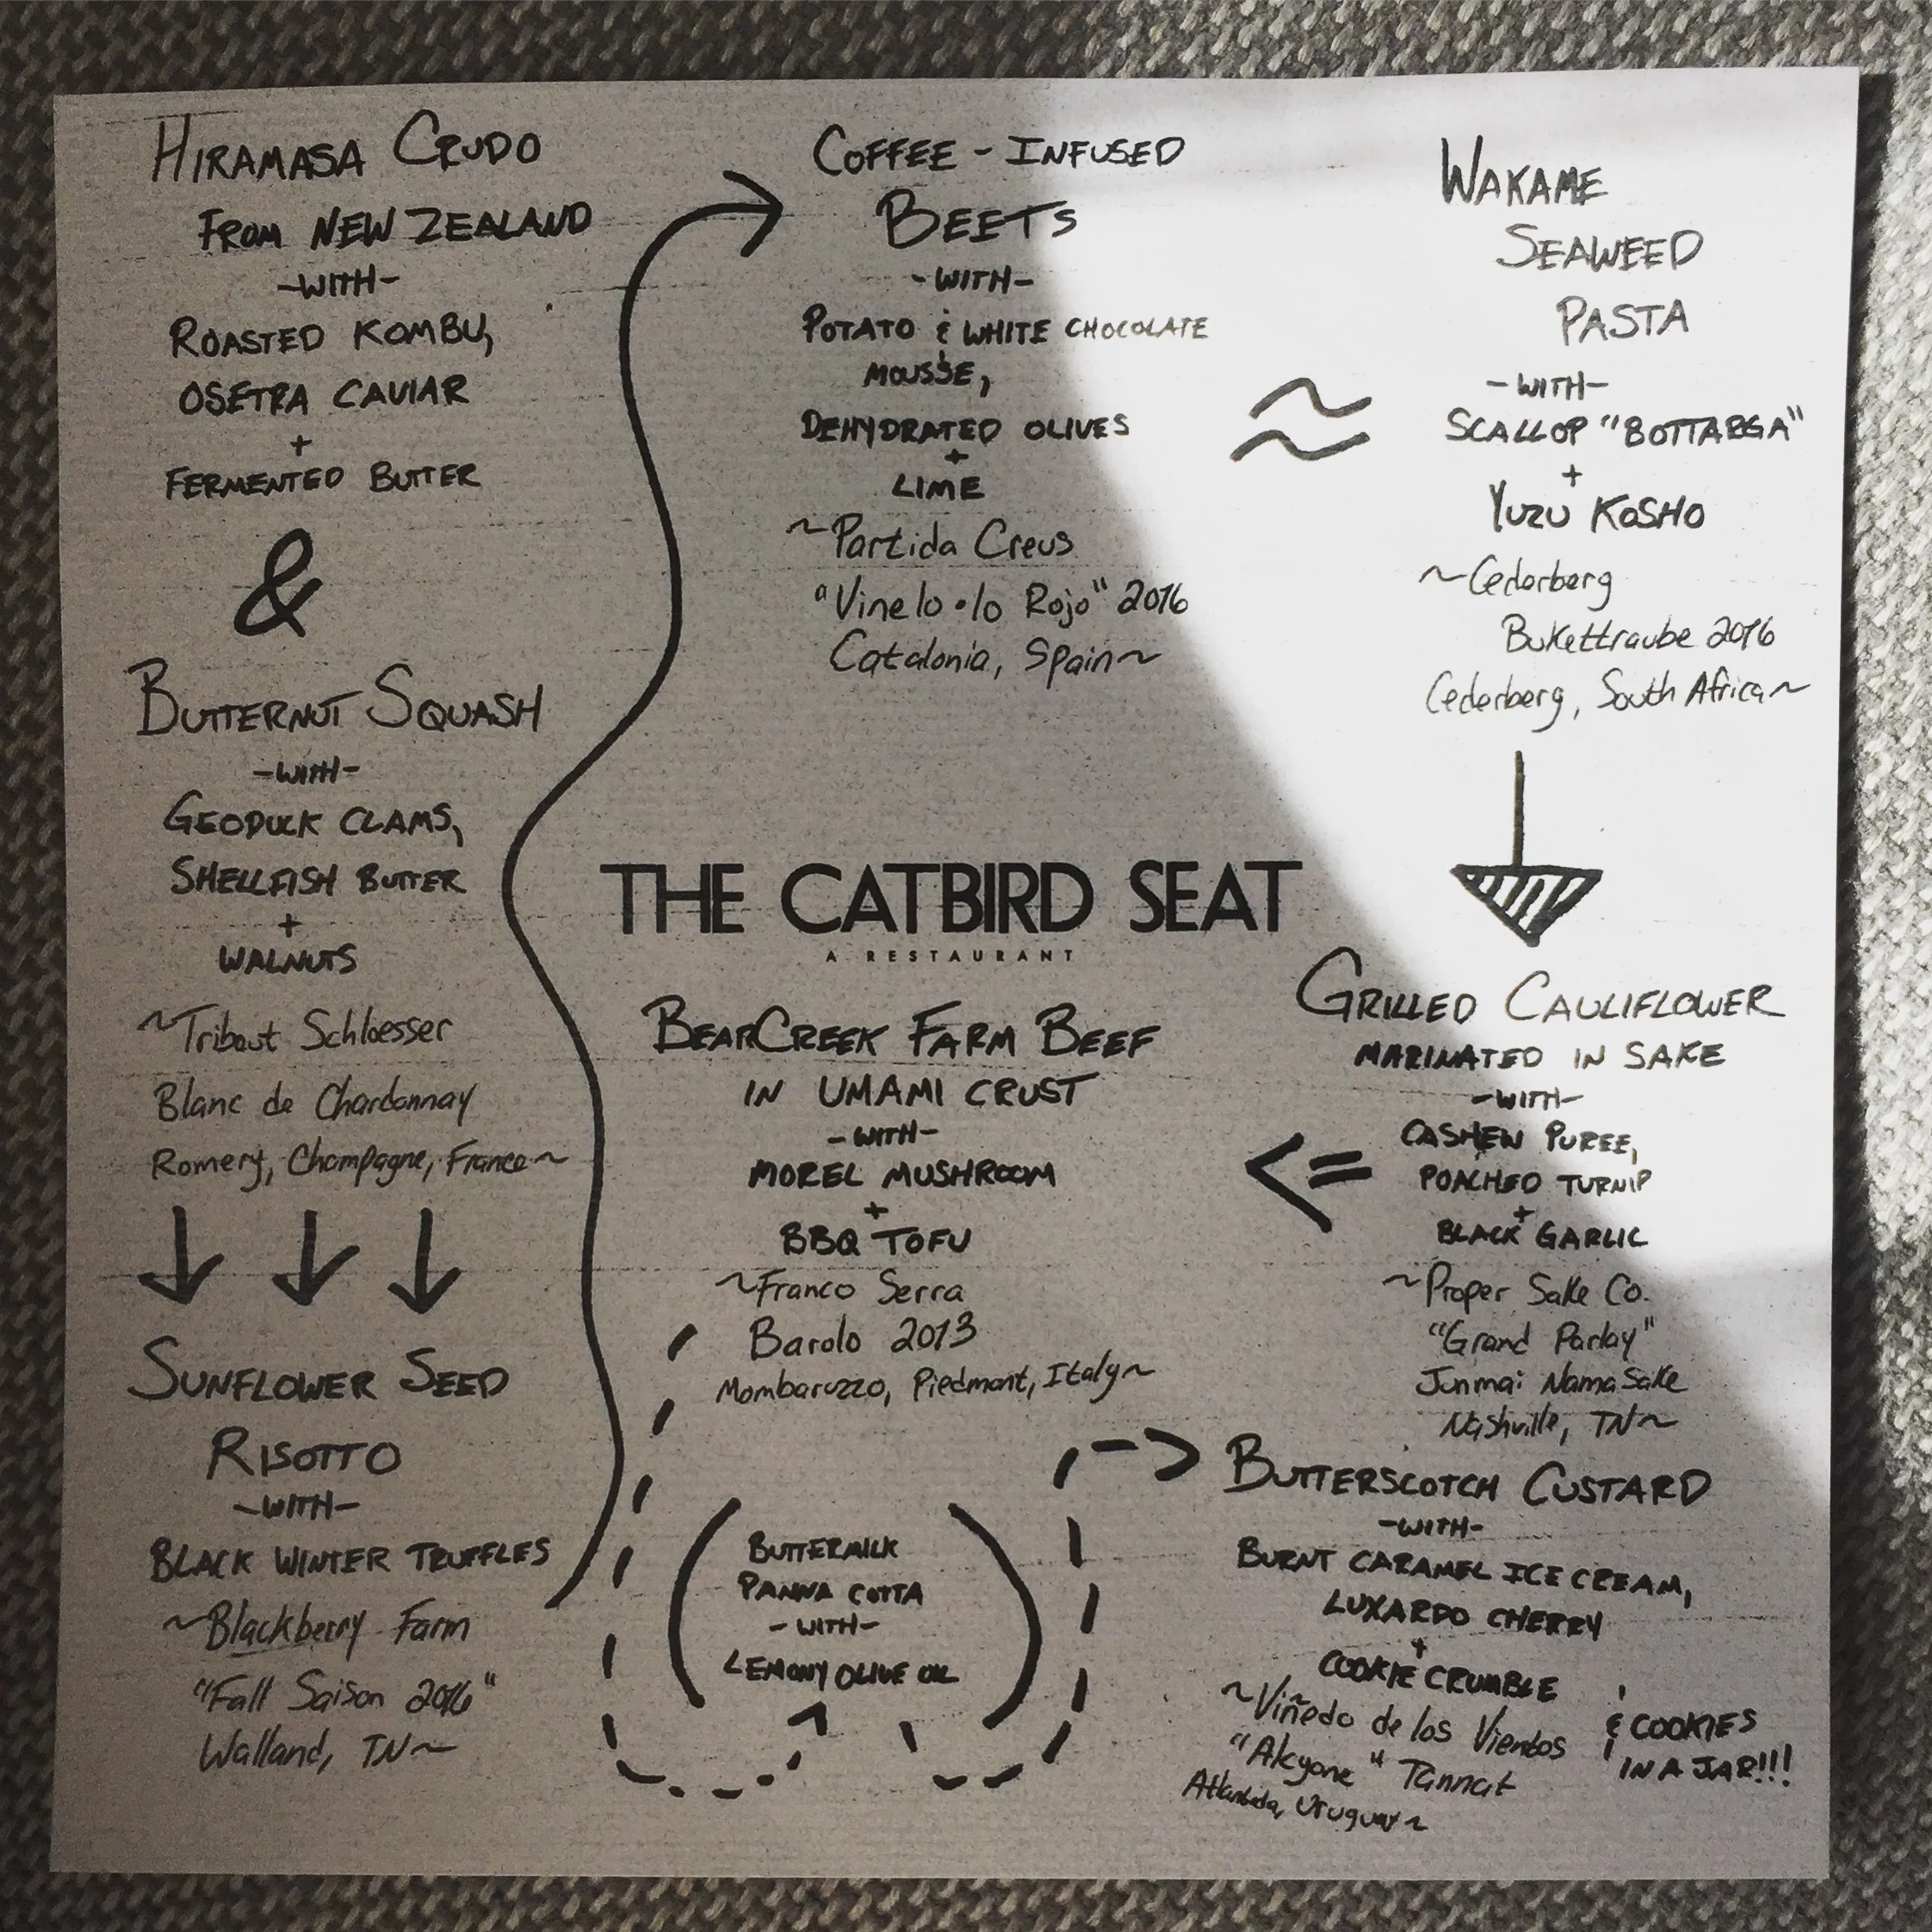 HIRAMASA CRUDO
FROM NEW ZEALAND
-WITH-
ROASTED KOMBU,
OSETRA CAVIAR
+
FERMENTED BUTTER
&
BUTTERNUT SQUASH
-WITH-
GEODUCK CLAMS,
SHELLFISH BUTTER
+
WALNUTS
~Tribaut Schloesser
Blanc de Chardonnay
Romery, Champagne, France~
SUNFLOWER SEED
RISOTTO
-WITH-
BLACK WINTER TRUFFLES
~Blackberry Farm
"Fall Saison 2016"
Walland, TN~
COFFEE-INFUSED
BEETS
-WITH-
POTATO & WHITE CHOCOLATE
MOUSSE,
DEHYDRATED OLIVES
+
LIME
~Partida Creus
"Vinelo•lo Rojo" 2016
Catalonia, Spain~
WAKAME
SEAWEED
PASTA
-WITH-
SCALLOP "BOTTARGA"
+
YUZU KOSHO
~Cederberg
Bukettraube 2016
Cederberg, South Africa~
GRILLED CAULIFLOWER
MARINATED IN SAKE
-WITH-
CASHEW PUREE,
POACHED TURNIP
+
BLACK GARLIC
~Proper Sake Co.
"Grand Parlay"
Junmai Nama Sake
Nashville, TN~
THE CATBIRD SEAT
A RESTAURANT
BEARCREEK FARM BEEF
IN UMAMI CRUST
-WITH-
MOREL MUSHROOM
+
BBQ TOFU
~Franco Serra
Barolo 2013
Mombaruzzo, Piedmont, Italy~
BUTTERMILK
PANNA COTTA
-WITH-
LEMONY OLIVE OIL
BUTTERSCOTCH CUSTARD
-WITH-
BURNT CARAMEL ICE CREAM,
LUXARDO CHERRY
+
COOKIE CRUMBLE
~Viñedo de los Vientos
"Alcyone" Tannat
Atlantida, Uruguay~
& COOKIES
IN A JAR!!!